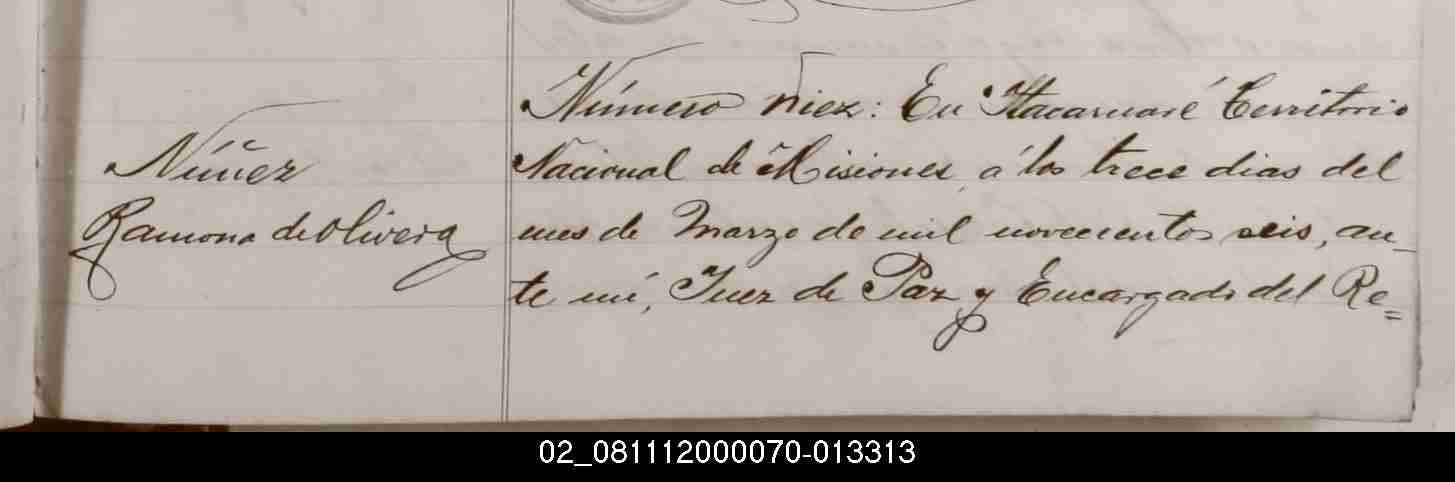 Núñez
Ramona de Olivera
Número diez: En Itacaruaré Territorio
Nacional de Misiones, á los trece dias del
mes de Marzo de mil novecientos seis, an-
te mí, Juez de Paz y Encargado del Re=
02_081112000070-013313